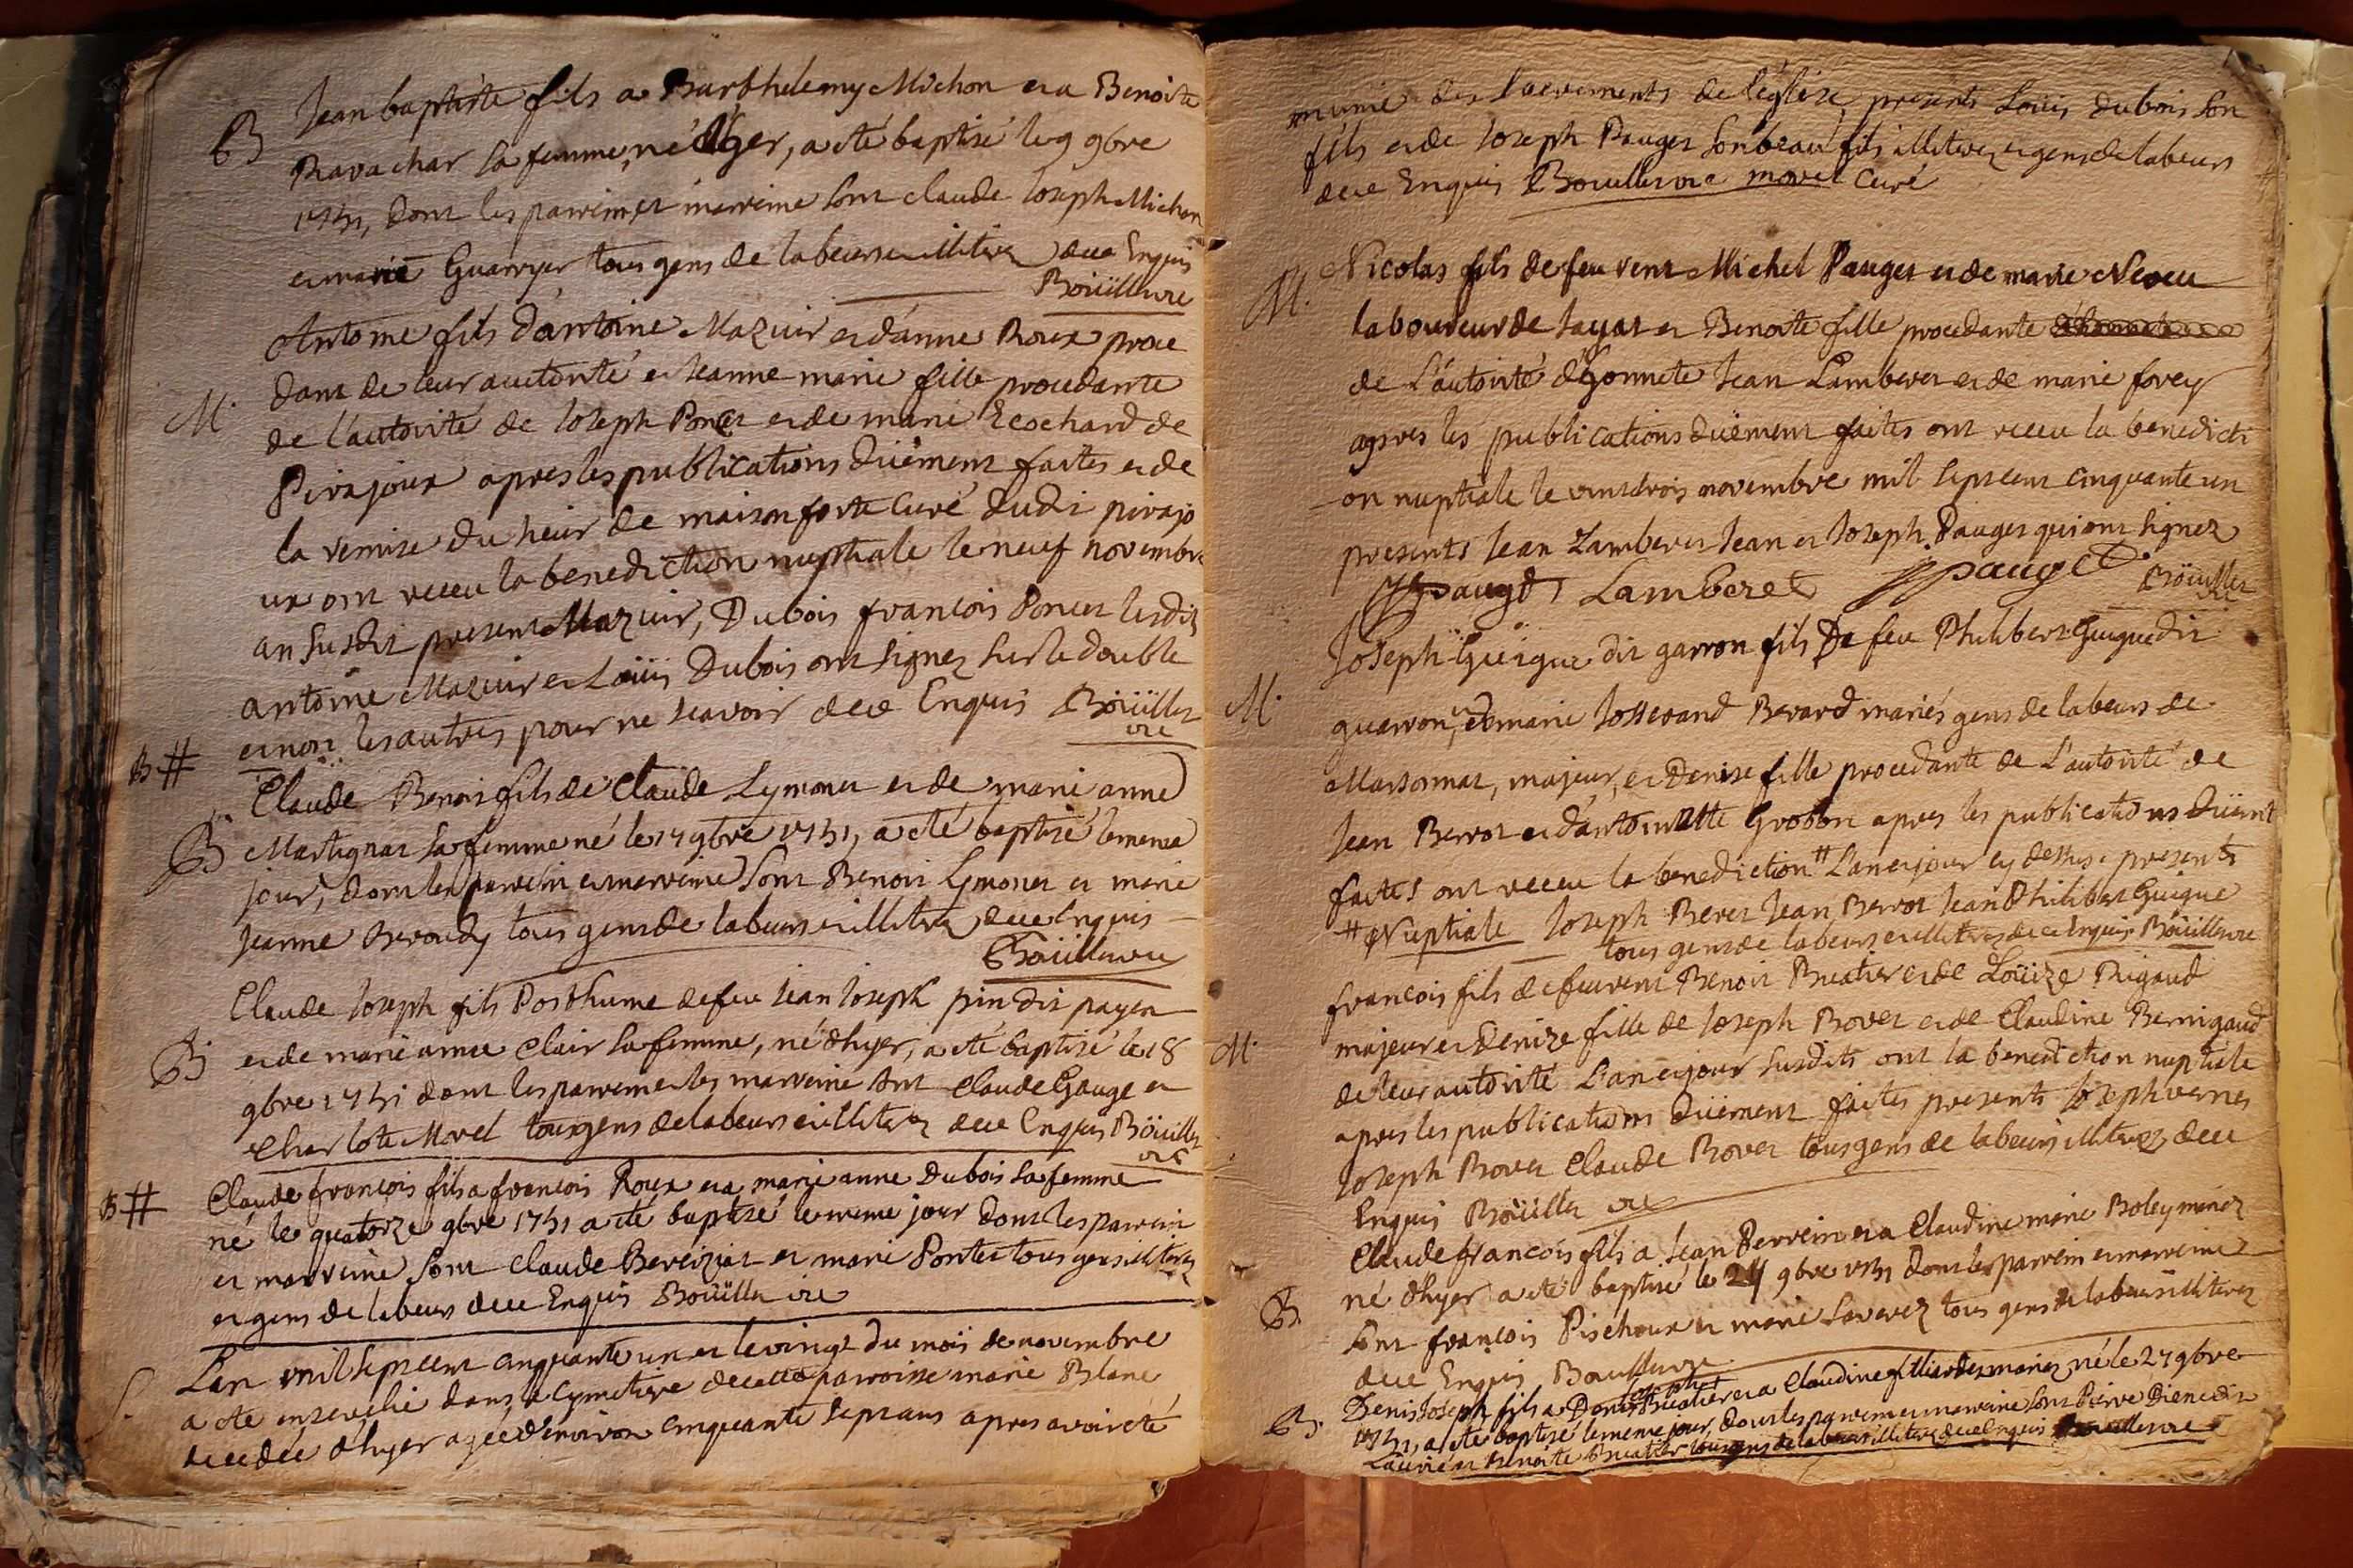 B Jean baptiste fils a Barthelemy Michon et a Benoite
Ravachat sa femme, né d'hyer, a eté baptisé le 9 9bre
1751, dont les parrein, et marreine sont claude Joseph Michon
et marie tous gens de labeurs et illiterez de ce Enquis
Boüillier vic
Antoine fils d'antoine Mazuir et d'anne Roux proce
M. dant de leur auctorité et Jeanne marie fille procedante
de l'autorité de Joseph Poncet et de marie Ecochard de
Pirajoux apres les publications düement faites et de
la remise du sieur de maisonforte Curé dudit pirajo
ux ont receu la benediction nuptiale le neuf novembre
an susdit present Mazuir, Dubois francois Poncet lesdits
antoine Mazuir et Loüis Dubois ont signez sur le double
et non les autres pour ne scavoir de ce Enquis Boüillier
vic
B #
Claude Benoit fils de Claude Lymonet et de marie anne
B Martignat sa femme né le 17 9bre 1751, a eté baptisé le meme
jour, dont les parrein et marreine sont Benoit Lymonet et marie
Jeanne tous gens de labeurs et illiterez de ce Enquis
Boüillier vic
Claude Joseph fils Posthume de feu Jean Joseph pin dit payen
B et de marie anne Clair sa femme, né d'hyer, a eté baptisé le 18
9bre 1751 dont les parrein et les marreine sont Claude Gauge et
Charlote Morel tous gens de labeurs et illiterez de ce Enquis Boüillier
vic
B # Claude francois fils a francois Roux et a marie anne Dubois sa femme
né le quatorze 9bre 1751 a eté baptisé le meme jour dont les parrein
et marreine sont Claude et marie tous gens illiterez
et gens de labeurs de ce Enquis Boüillier vic
S. L'an mil sept cent cinquante un et le vingt du mois de novembre
a eté ensevelie dans le cymetiere de cette parroisse marie Blanc
decedée d'hyer agée d'environ cinquante sept ans apres avoir eté
munie des sacrements de l'église, presents Loüis Dubois son
fils et de Joseph Pauget son beau fils illiterez et gens de labeurs
de ce Enquis Bouillier vic morel Curé
M. Nicolas fils de feu vent Michel Pauget et de marie Neveu
laboureur de Jayat et Benoite fille procedante
de L'autorité d'honnete Jean Lamberet et de marie forey
apres les publications düement faites ont receu la benedicti
on nuptiale le vint trois novembre mil sept cent cinquante un
presents Jean Lamberet Jean et Joseph Pauget qui ont signez
Jpauget Lamberet Jpauget Boüillier
vic
Joseph Guigue dit garron fils De feu Philibert Guigue dit
M. guarron, et marie Josserand Berard mariés gens de labeurs de
Marsonnat, majeur, et Denise fille procedante de L'autorité de
Jean Berrot et d'antoinette Grobon apres les publications düemt
faites ont receu la benediction # L'an et jour cy dessus. presents
# Nuptiale Joseph Jean Berrot Jean Philibert Guigue
tous gens de labeurs et illiterez de ce Enquis Boüillier vic
francois fils de feu vent Benoit Buatier et de Loüize Rigaud
M. majeur et Denize fille de Joseph Bovet et de Claudine Bernigaud
de leur autorité L'an et jour susdits ont la benediction nuptiale
apres les publications düement faites presents Joseph
Joseph Bovet Claude Bovet tous gens de labeurs illiterez de ce
Enquis Boüillier vic
Claude francois fils a Jean Perrein et a Claudine marie mariez
B. né d'hyer a eté baptisé le 24 9bre 1751 dont les parrein et marreine
sont francois Pischoux et marie tous gens de labeurs illiterez
de ce Enquis Bouillier vic
B. Denis Joseph fils a Buatier et a Claudine mariez né le 27 9bre
1751, a eté baptisé le meme jour, dont les parrein et marreine sont Pierre dit
et Benoite Buatier tous gens de labeurs illiterez de ce Enquis Bouillier vic